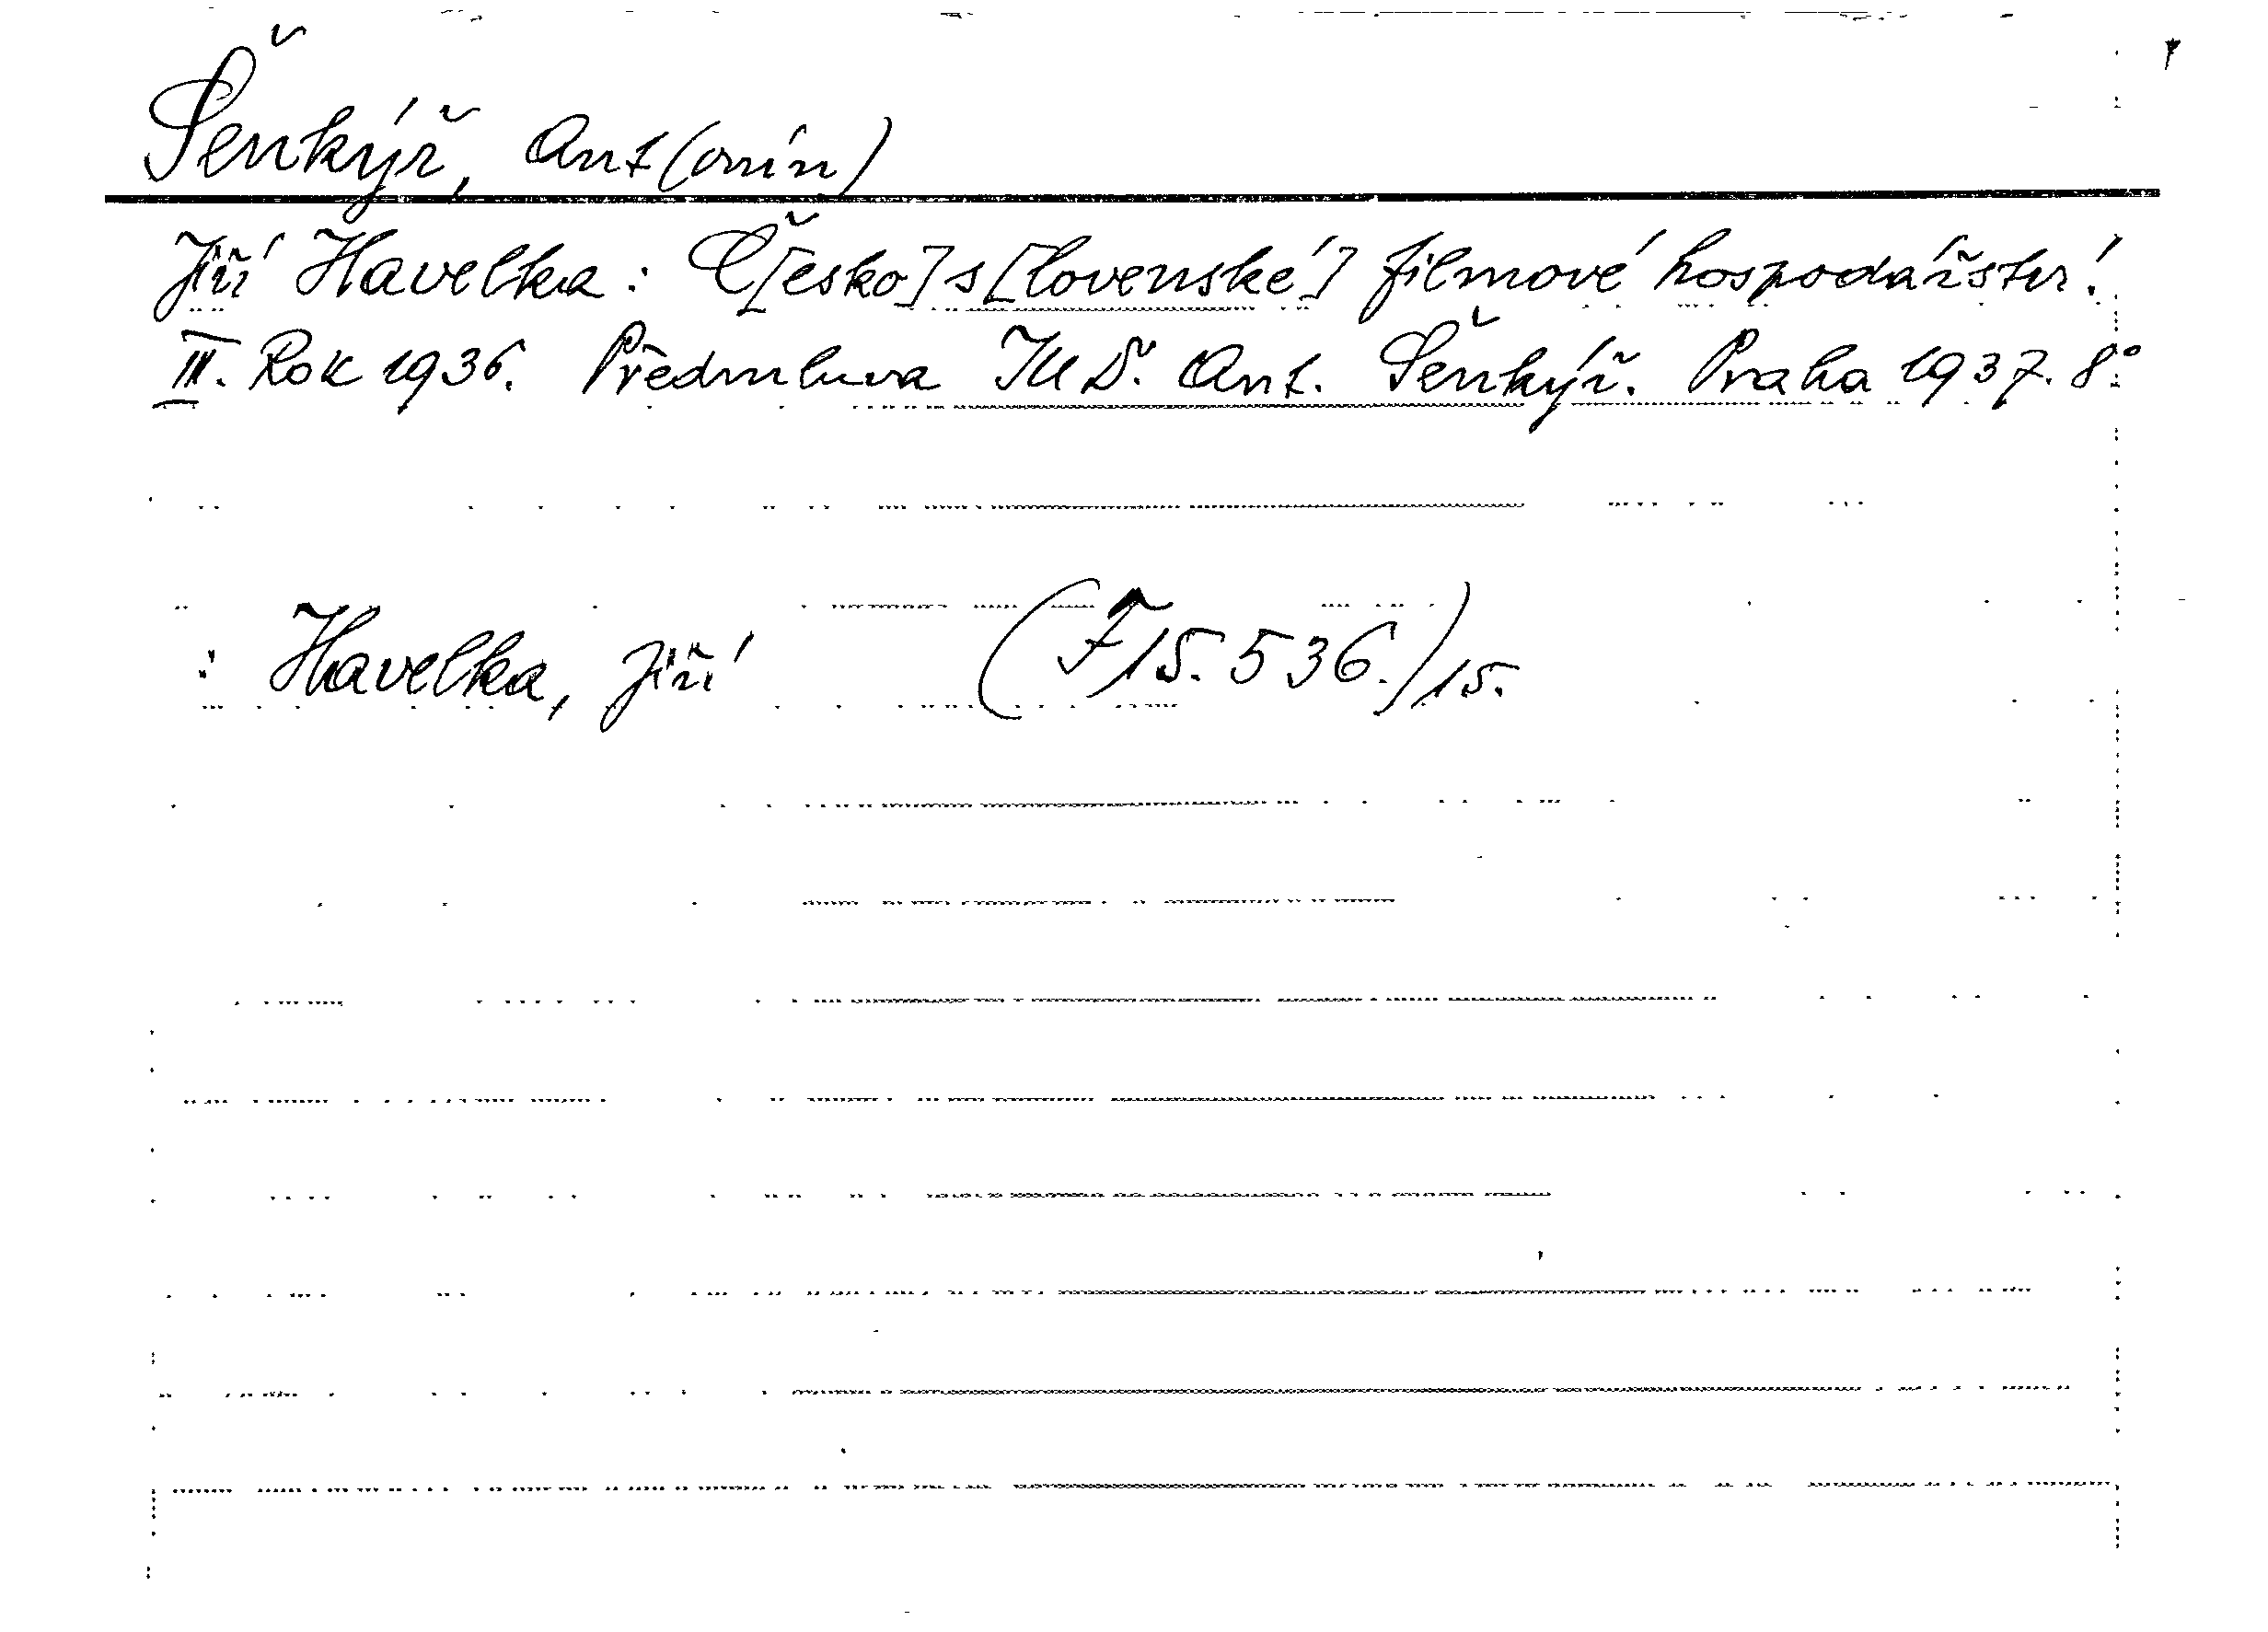 Šenkýř, Ant(onín)
Jiří Havelka: Č[esko]s[lovenské] filmové hospodářství.
III. Rok 1936. Předmluva JUDr. Ant. Šenkýř. Praha 1937. 8°.
: Havelka, Jiří (F 15.536.)/15.